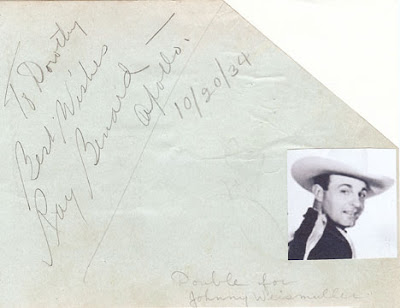 To Dorothy
Best Wishes
Ray Benard
Apollo.
10/20/34
Double for
Johnny Weismuller.